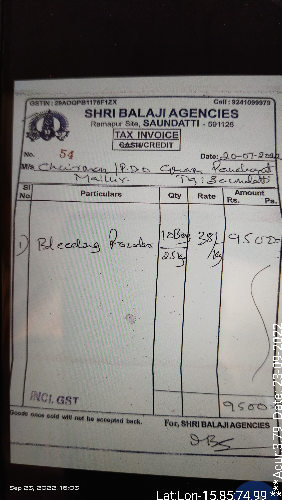 GSTIN : 29AOQPB1176F1ZX Cell : 9241099979
SHRI BALAJI AGENCIES
Ramapur Site, SAUNDATTI - 591126
TAX INVOICE
CASH/CREDIT
No. 54 Date: 20-07-2022
M/s Chairman / P.D.O Gram Panchayat
Tq: Saundatti
Sl No. Particulars Qty Rate Amount Rs. Ps.
1) Bleeching Powder 10 Bag 25kg 38/ /kg 9500
INCL GST 9500
Goods once sold will not be accepted back. For, SHRI BALAJI AGENCIES
Sep 23, 2022 16:03
LatLon-158574.99
***Acur:3.79 Date:23.09.2022